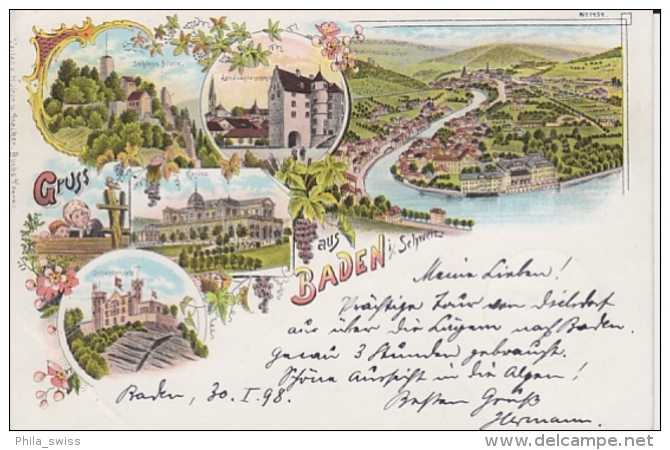 No 1434.
Schloss Stein.
Landvogteischloss
Kursaal
Gruss
aus
BADEN i/ Schweiz
Meine Lieben!
Prächtige Tour von Dielsdorf
aus über die Lägern nach Baden.
Genau 3 Stunden gebraucht.
Schöne Aussicht in die Alpen!
Baden, 30. I. 98.
Besten Gruß
Hermann.
Phila_swiss
www.delcampe.net